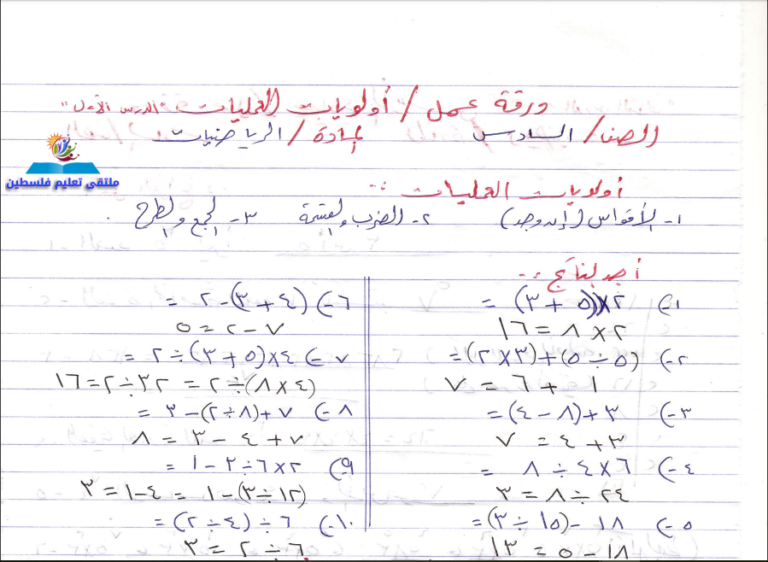 ورقة عمل / أولويات العمليات "الدرس الأول"
الصف / السادس المادة / الرياضيات
ملتقى تعليم فلسطين
أولويات العمليات :-
١- الأقواس (إن وجد) ٢- الضرب والقسمة ٣- الجمع والطرح
أجد الناتج :-
١-) ٢ × (٥ + ٣) =
٢ × ٨ = ١٦
٢-) (٥ ÷ ٥) + (٣ × ٢) =
١ + ٦ = ٧
٣-) ٣ + (٨ - ٤) =
٣ + ٤ = ٧
٤-) ٦ × ٤ ÷ ٨ =
٢٤ ÷ ٨ = ٣
٥-) ١٨ - (١٥ ÷ ٣) =
١٨ - ٥ = ١٣
٦-) (٤ + ٣) - ٢ =
٧ - ٢ = ٥
٧-) ٤ × (٥ + ٣) ÷ ٢ =
(٤ × ٨) ÷ ٢ = ٣٢ ÷ ٢ = ١٦
٨-) ٧ + (٨ ÷ ٢) - ٣ =
٧ + ٤ - ٣ = ٨
٩) ٢ × ٦ ÷ ٣ - ١ =
(١٢ ÷ ٣) - ١ = ٤ - ١ = ٣
١٠-) ٦ ÷ (٤ ÷ ٢) =
٦ ÷ ٢ = ٣